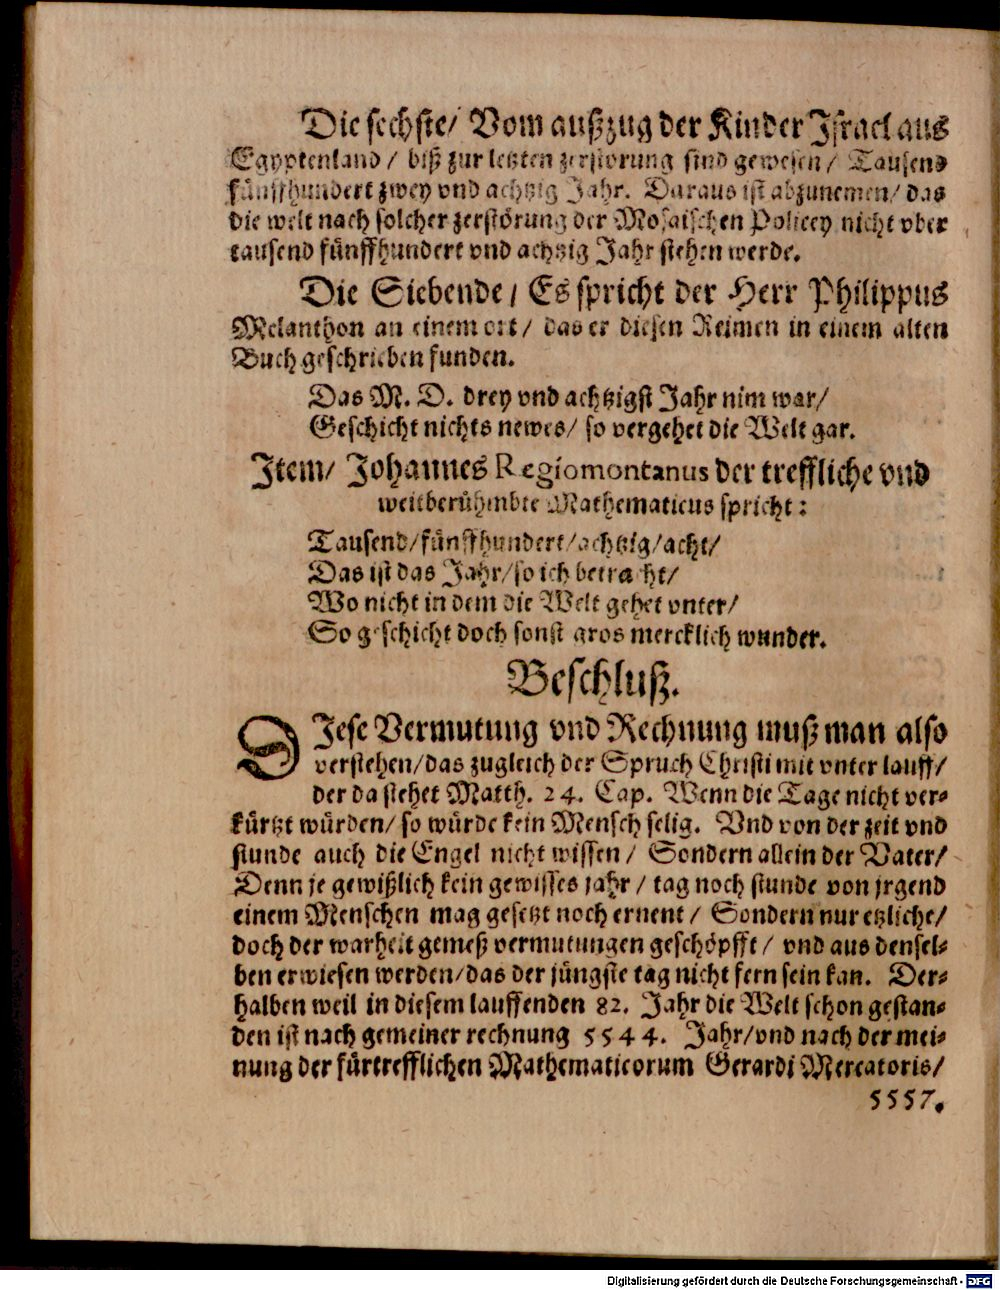 Die sechste/ Vom außzug der Kinder Israel aus
Egyptenland/ biß zur letzten zerstörung sind gewesen/ Tausend
fünffhundert zwey vnd achtzig Jahr. Daraus ist abzunemen/ das
die welt nach solcher zerstörung der Mosaischen Policey nicht vber
tausend fünffhundert vnd achtzig Jahr stehen werde.
Die Siebende/ Es spricht der Herr Philippus
Melanthon an einem ort/ das er diesen Reimen in einem alten
Buch geschrieben funden.
Das M. D. drey vnd achtzigst Jahr nim war/
Geschicht nichts newes/ so vergehet die Welt gar.
Item/ Johannes Regiomontanus der treffliche vnd
weitberühmbte Mathematicus spricht:
Tausend/fünffhundert/achtzig/acht/
Das ist das Jahr/so ich betracht/
Wo nicht in dem die Welt gehet vnter/
So geschicht doch sonst gros mercklich wunder.
Beschluß.
DIese Vermutung vnd Rechnung muß man also
verstehen/das zugleich der Spruch Christi mit vnter lauff/
der da stehet Matth. 24. Cap. Wenn die Tage nicht ver-
kürtzt würden/ so würde kein Mensch selig. Vnd von der zeit vnd
stunde auch die Engel nicht wissen/ Sondern allein der Vater/
Denn je gewißlich kein gewisses jahr/ tag noch stunde von jrgend
einem Menschen mag gesetzt noch ernent/ Sondern nur etzliche/
doch der warheit gemeß vermutungen geschöpfft/ vnd aus densel-
ben erwiesen werden/das der jüngste tag nicht fern sein kan. Der-
halben weil in diesem lauffenden 82. Jahr die Welt schon gestan-
den ist nach gemeiner rechnung 5544. Jahr/vnd nach der mei-
nung der fürtrefflichen Mathematicorum Gerardi Mercatoris/
5557.
Digitalisierung gefördert durch die Deutsche Forschungsgemeinschaft - DFG